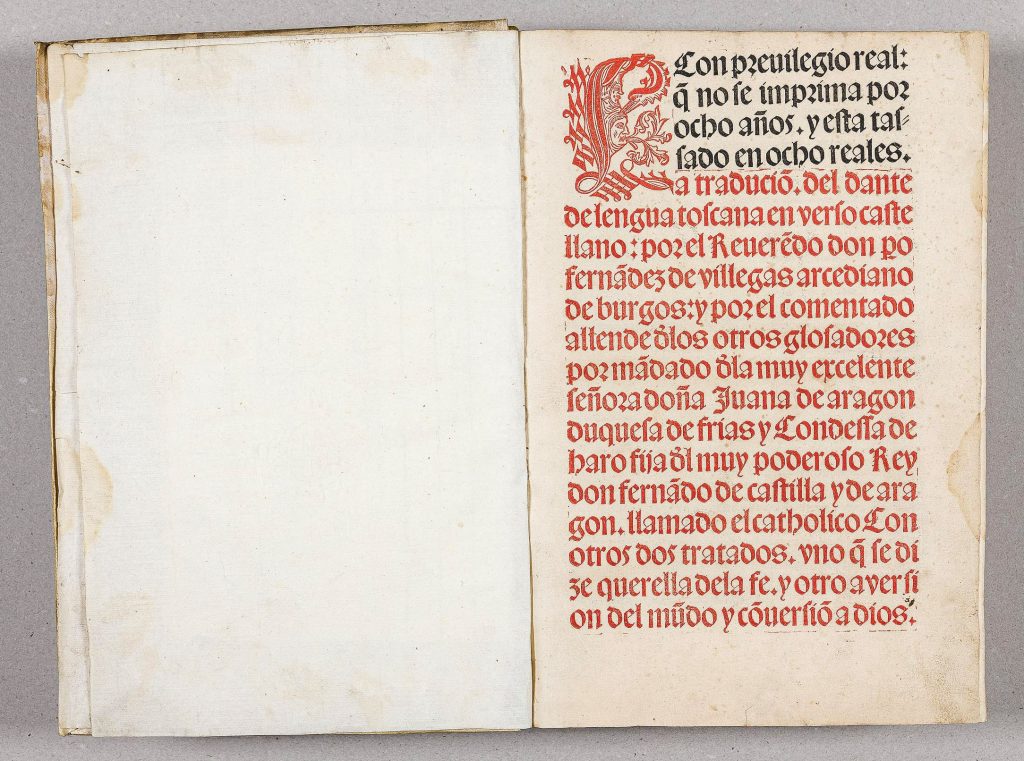 Con preuilegio real:
q̃ no se imprima por
ocho años. y esta tas-
sado en ocho reales.
La traduciõ. del dante
de lengua toscana en verso caste
llano: por el Reuerẽdo don p̱o
fernãdez de villegas arcediano
de burgos: y por el comentado
allende d̃los otros glosadores
por mãdado d̃la muy excelente
señora doña Juana de aragon
duquesa de frias y Condessa de
haro fija d̃l muy poderoso Rey
don fernãdo de castilla y de ara
gon. llamado el catholico Con
otros dos tratados. vno q̃ se di
ze querella dela fe. y otro auersi
on del mũdo y cõuersiõ a dios.